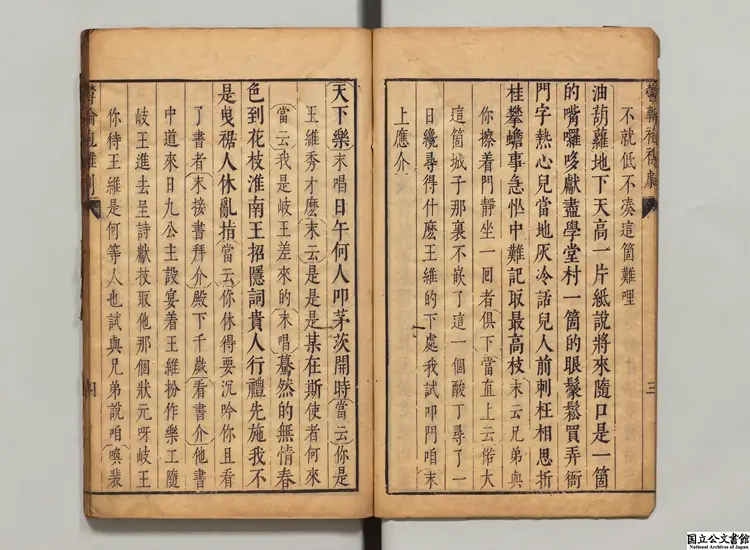 不就低不湊這箇難哩
油葫蘆地下天高一片紙說將來隨口是一箇
的嘴囉哆獻盡學堂村一箇的眼鬅鬆買弄衙
門字熱心兒當地灰冷話兒人前刺枉相思折
桂攀蟾事急怂中難記取最高枝末云兄弟與
你擦着門靜坐一囘者俱下當直上云偌大
這箇城子那裏不嵌了這一個酸丁尋了一
日纔尋得什麽王維的下處我試叩門咱末
上應介
三
天下樂末唱日午何人叩茅茨開時當云你是
王維秀才麽末云是是是某在斯使者何來
當云我是岐王差來的末唱驀然的無情春
色到花枝淮南王招隱詞貴人行禮先施我不
是曳裾人休亂指當云你休得要沉吟你且看
了書者末接書拜介殿下千歲看書介他書
中道來日九公主設宴着王維扮作樂工隨
岐王進去呈詩獻技取他那個狀元呀岐王
你待王維是何等人也試與兄弟說咱喚裴
四
国立公文書館
National Archives of Japan